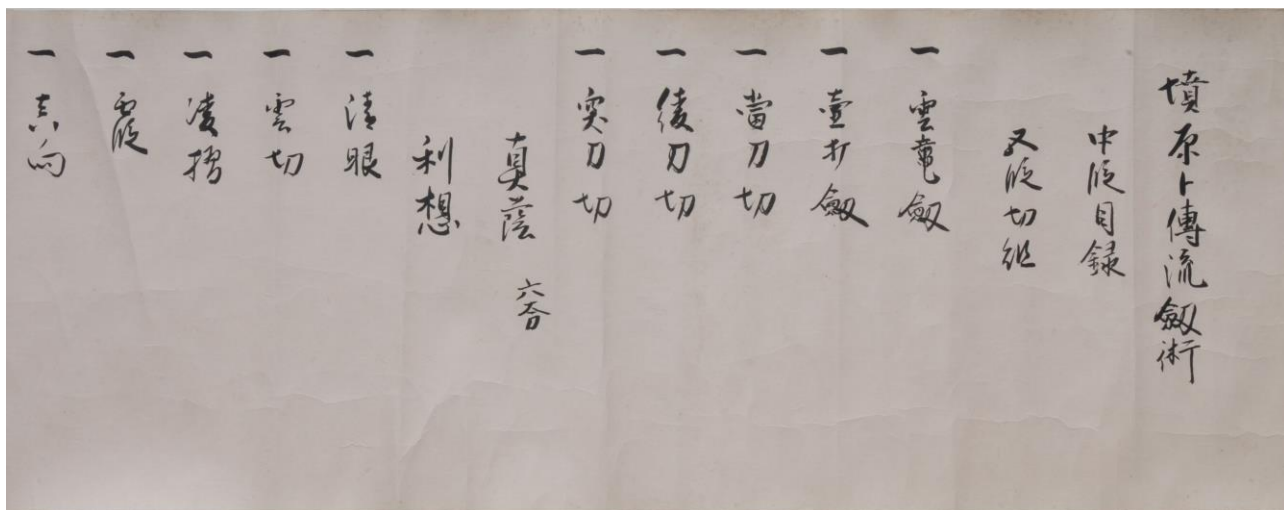 墳原卜傳流劔術
中段目録
又段切組
一 雲電劔
一 壹打劔
一 當刀切
一 後刀切
一 突刀切
真蔭 六合
利想
一 清眼
一 雲切
一 凌摺
一 霞
一 真向